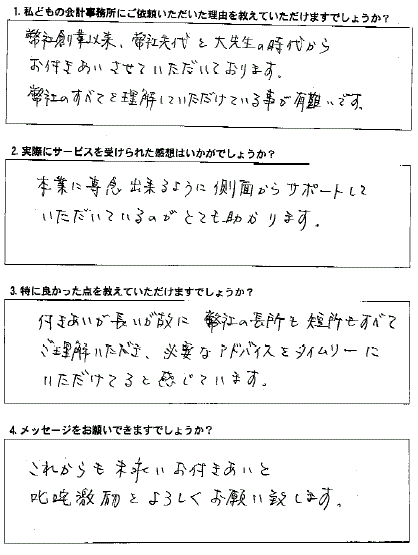 1. 私どもの会計事務所にご依頼いただいた理由を教えていただけますでしょうか？
弊社創業以来、弊社先代と大先生の時代から
お付きあいさせていただいております。
弊社のすべてを理解していただけている事が有難いです。
2. 実際にサービスを受けられた感想はいかがでしょうか？
本業に専念出来るように側面からサポートして
いただいているのがとても助かります。
3. 特に良かった点を教えていただけますでしょうか？
付きあいが長いが故に弊社の長所も短所もすべて
ご理解いただき、必要なアドバイスをタイムリーに
いただけてると感じています。
4. メッセージをお願いできますでしょうか？
これからも末永いお付きあいと
叱咤激励をよろしくお願い致します。